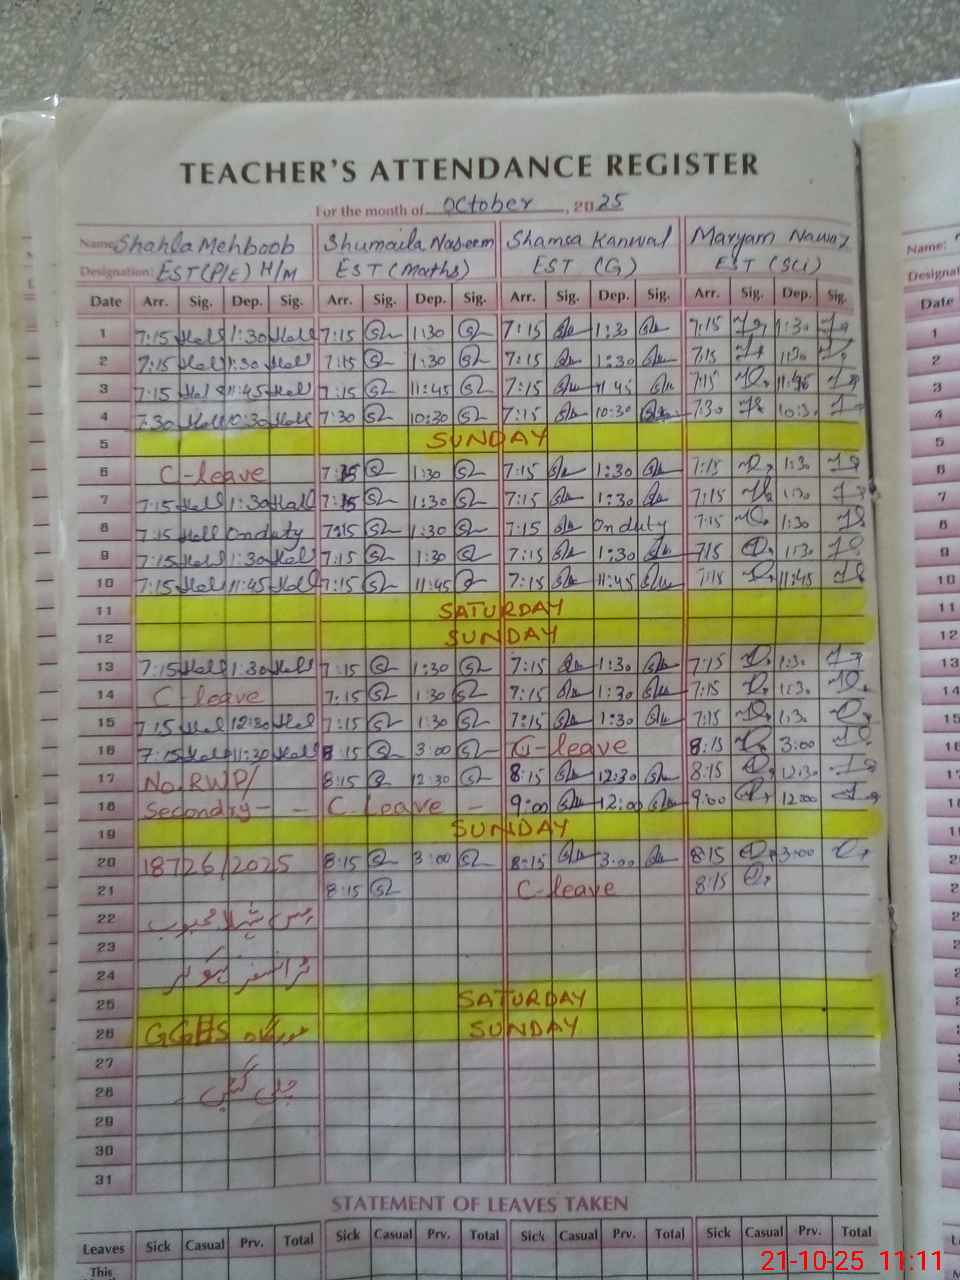 TEACHER'S ATTENDANCE REGISTER
For the month of October, 2025
Name: Shahla Mehboob Shumaila Naseem Shamsa Kanwal Maryam Nawaz
Designation: EST(P/E) H/M EST (Maths) EST (G) EST (Sci)
Date Arr. Sig. Dep. Sig. Arr. Sig. Dep. Sig. Arr. Sig. Dep. Sig. Arr. Sig. Dep. Sig.
1 7:15 1:30 7:15 1:30 7:15 1:30 7:15 1:30
2 7:15 1:30 7:15 1:30 7:15 1:30 7:15 1:30
3 7:15 11:45 7:15 11:45 7:15 11 45 7:15 11:45
4 7:30 10:30 7:30 10:30 7:15 10:30 7:30 10:30
5 SUNDAY
6 C-leave 7:15 1:30 7:15 1:30 7:15 1:30
7 7:15 1:30 7:15 1:30 7:15 1:30 7:15 1:30
8 7:15 On duty 7:15 1:30 7:15 On duty 7:15 1:30
9 7:15 1:30 7:15 1:30 7:15 1:30 7:15 1:30
10 7:15 11:45 7:15 11:45 7:15 11:45 7:15 11:45
11 SATURDAY
12 SUNDAY
13 7:15 1:30 7:15 1:30 7:15 1:30 7:15 1:30
14 C-leave 7:15 1:30 7:15 1:30 7:15 1:30
15 7:15 12:30 7:15 1:30 7:15 1:30 7:15 1:30
16 7:15 11:30 8:15 3:00 C-leave 8:15 3:00
17 No.RWP/ 8:15 12:30 8:15 12:30 8:15 12:30
18 Secondry- - C Leave - 9:00 12:00 9:00 12:00
19 SUNDAY
20 18726/2025 8:15 3:00 8:15 3:00 8:15 3:00
21 8:15 C-leave 8:15
22 مس شہلا محبوب
23
24 ٹرانسفر ہو کر
25 SATURDAY
26 GGHS SUNDAY
27
28 چلی گئیں
29
30
31
STATEMENT OF LEAVES TAKEN
Leaves Sick Casual Prv. Total Sick Casual Prv. Total Sick Casual Prv. Total Sick Casual Prv. Total
This
21-10-25 11:11